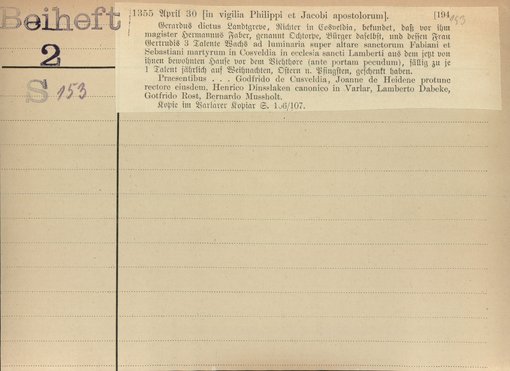 Beiheft
2
S 153
1355 April 30 [in vigilia Philippi et Jacobi apostolorum]. [194
153
Gerardus dictus Landtgreve, Richter in Cosveldia, bekundet, daß vor ihm
magister Hermannus Faber, genannt Ochtorpe, Bürger daselbst, und dessen Frau
Gertrudis 3 Talente Wachs ad luminaria super altare sanctorum Fabiani et
Sebastiani martyrum in Cosveldia in ecclesia sancti Lamberti aus dem jetzt von
ihnen bewohnten Hause vor dem Viehthore (ante portam pecudum), fällig zu je
1 Talent jährlich auf Weihnachten, Ostern u. Pfingsten, geschenkt haben.
Praesentibus . . . Godfrido de Cusveldia, Joanne de Heidene protunc
rectore eiusdem, Henrico Dinsslaken canonico in Varlar, Lamberto Dabeke,
Gotfrido Rost, Bernardo Mussholt.
Kopie im Varlarer Kopiar S. 106/107.